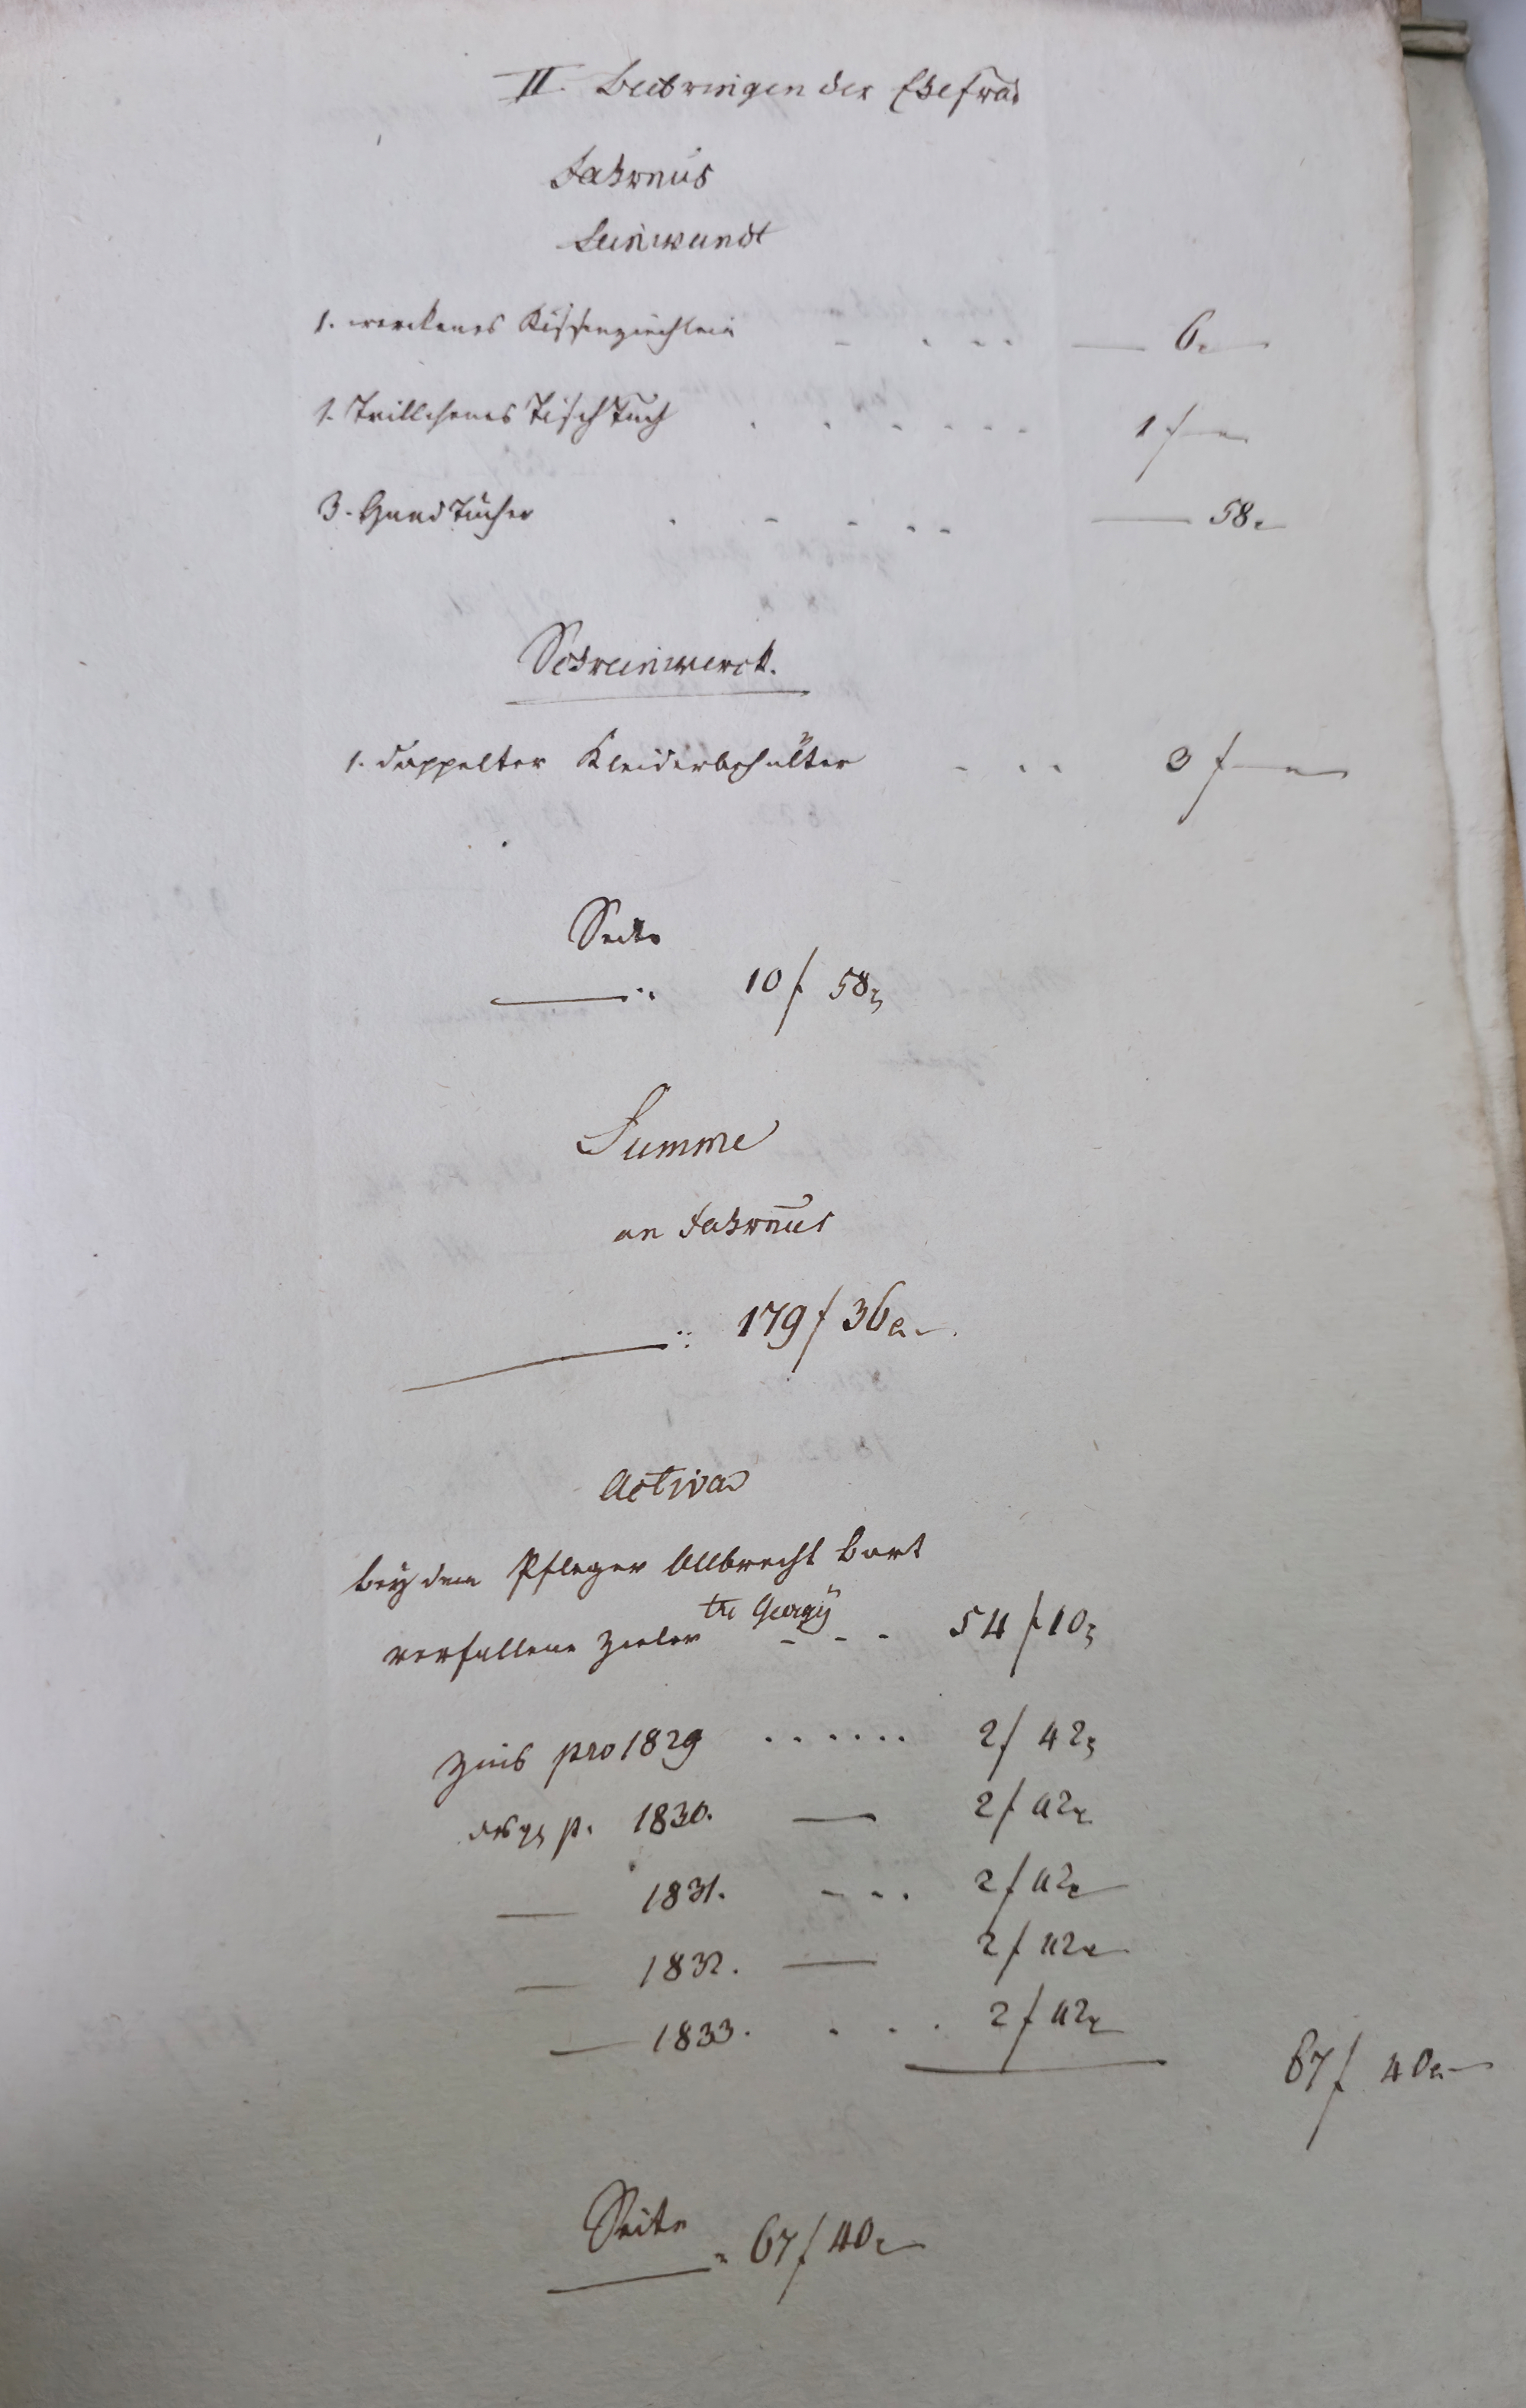 II. Beibringen der Ehefrau
Fahrnus
Leinwandt
1. werckenes Kissenziechlein - . . . — 6 x
1. Trillchenes Tisch Tuch . . . . . . 1 f —
3. Hand Tücher . - - . . — 58 x
Schreinwerck.
1. doppelter Kleiderbehälter - . . 3 f —
Seite
— .. 10 f 58 x
Summe
an Fahrnus
— :: 179 f 36 x.
Activa
bey dem Pfleger Albrecht Bort
verfallene Zieler Georgÿ - - - 54 f 10 x
Zins pro 1829 . . . . . . 2 f 42 x
desgl p. 1830. — 2 f 42 x
— 1831. - - . 2 f 42 x
— 1832. — 2 f 42 x
— 1833. . . . 2 f 42 x
67 f 40 x
Seite
— 67 f 40 x